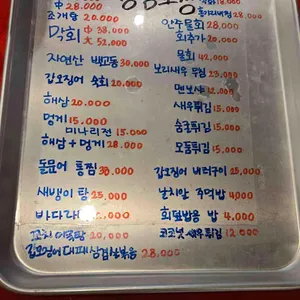 中 28.000
조개탕 20.000
막회 中 38.000
大 52.000
자연산 백고동 30.000
갑오징어 숙회 20.000
해삼 20.000
멍게 15.000
미나리전 15.000
해삼 + 멍게 28.000
돌문어 통찜 38.000
새뱅이 탕 25.000
바다라
꼬치 어묵탕 20.000
갑오징어 대패 삼겹 볶음 28.000
28.000
안주물회 28.000
회추가 20.000
물회 42.000
보리새우 무침 23.000
멘보샤 12.000
새우튀김 15.000
숭어튀김 15.000
모듬튀김 15.000
갑오징어 버터구이 25.000
날치알 주먹밥 4,000
회덮밥용 밥 4.000
코코넛 새우튀김 12.000